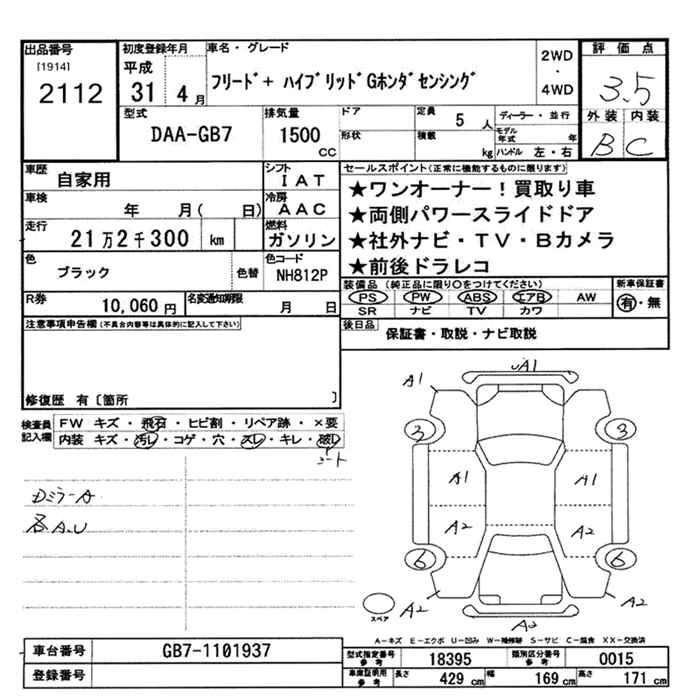 出品番号
[1914]
2112
初度登録年月
平成
31 4 月
車名・グレード
フリード+ ハイブリッドGホンダセンシング
2WD
・
4WD
評価点
3.5
外装 内装
B C
型式
DAA-GB7
排気量
1500
CC
ドア
形状
定員 5 人
積載 kg
ディーラー・並行
モデル年式 年
ハンドル 左・右
車歴
自家用
シフト
IAT
車検
年 月( 日)
冷房
AAC
走行
21万2千300 km
燃料
ガソリン
色
ブラック
色替
色コード
NH812P
R券
10,060円
名変通知期限
月 日
セールスポイント(正常に機能するものに限ります)
★ワンオーナー!買取り車
★両側パワースライドドア
★社外ナビ・TV・Bカメラ
★前後ドラレコ
装備品(純正品に限り○をつけてください)
PS PW ABS エアB AW
SR ナビ TV カワ
新車保証書
有・無
後日品
保証書・取説・ナビ取説
注意事項申告欄(不具合内容等は具体的に記入して下さい)
修復歴 有〔箇所 〕
検査員
記入欄
FW キズ・飛石・ヒビ割・リペア跡・×要
内装 キズ・汚レ・コゲ・穴・スレ・キレ・破レ
シート
DミラーA
各A.U
UA1
A1
A1
3
3
A1
A1
A2
A2
6
6
A2
A2
A2
スペア
A-キズ E-エクボ U-凹み W-補修跡 S-サビ C-腐食 XX-交換済
車台番号
GB7-1101937
登録番号
型式指定番号
参考
18395
類別区分番号
参考
0015
車庫証明用
参考
長さ 429 cm
幅 169 cm
高さ 171 cm